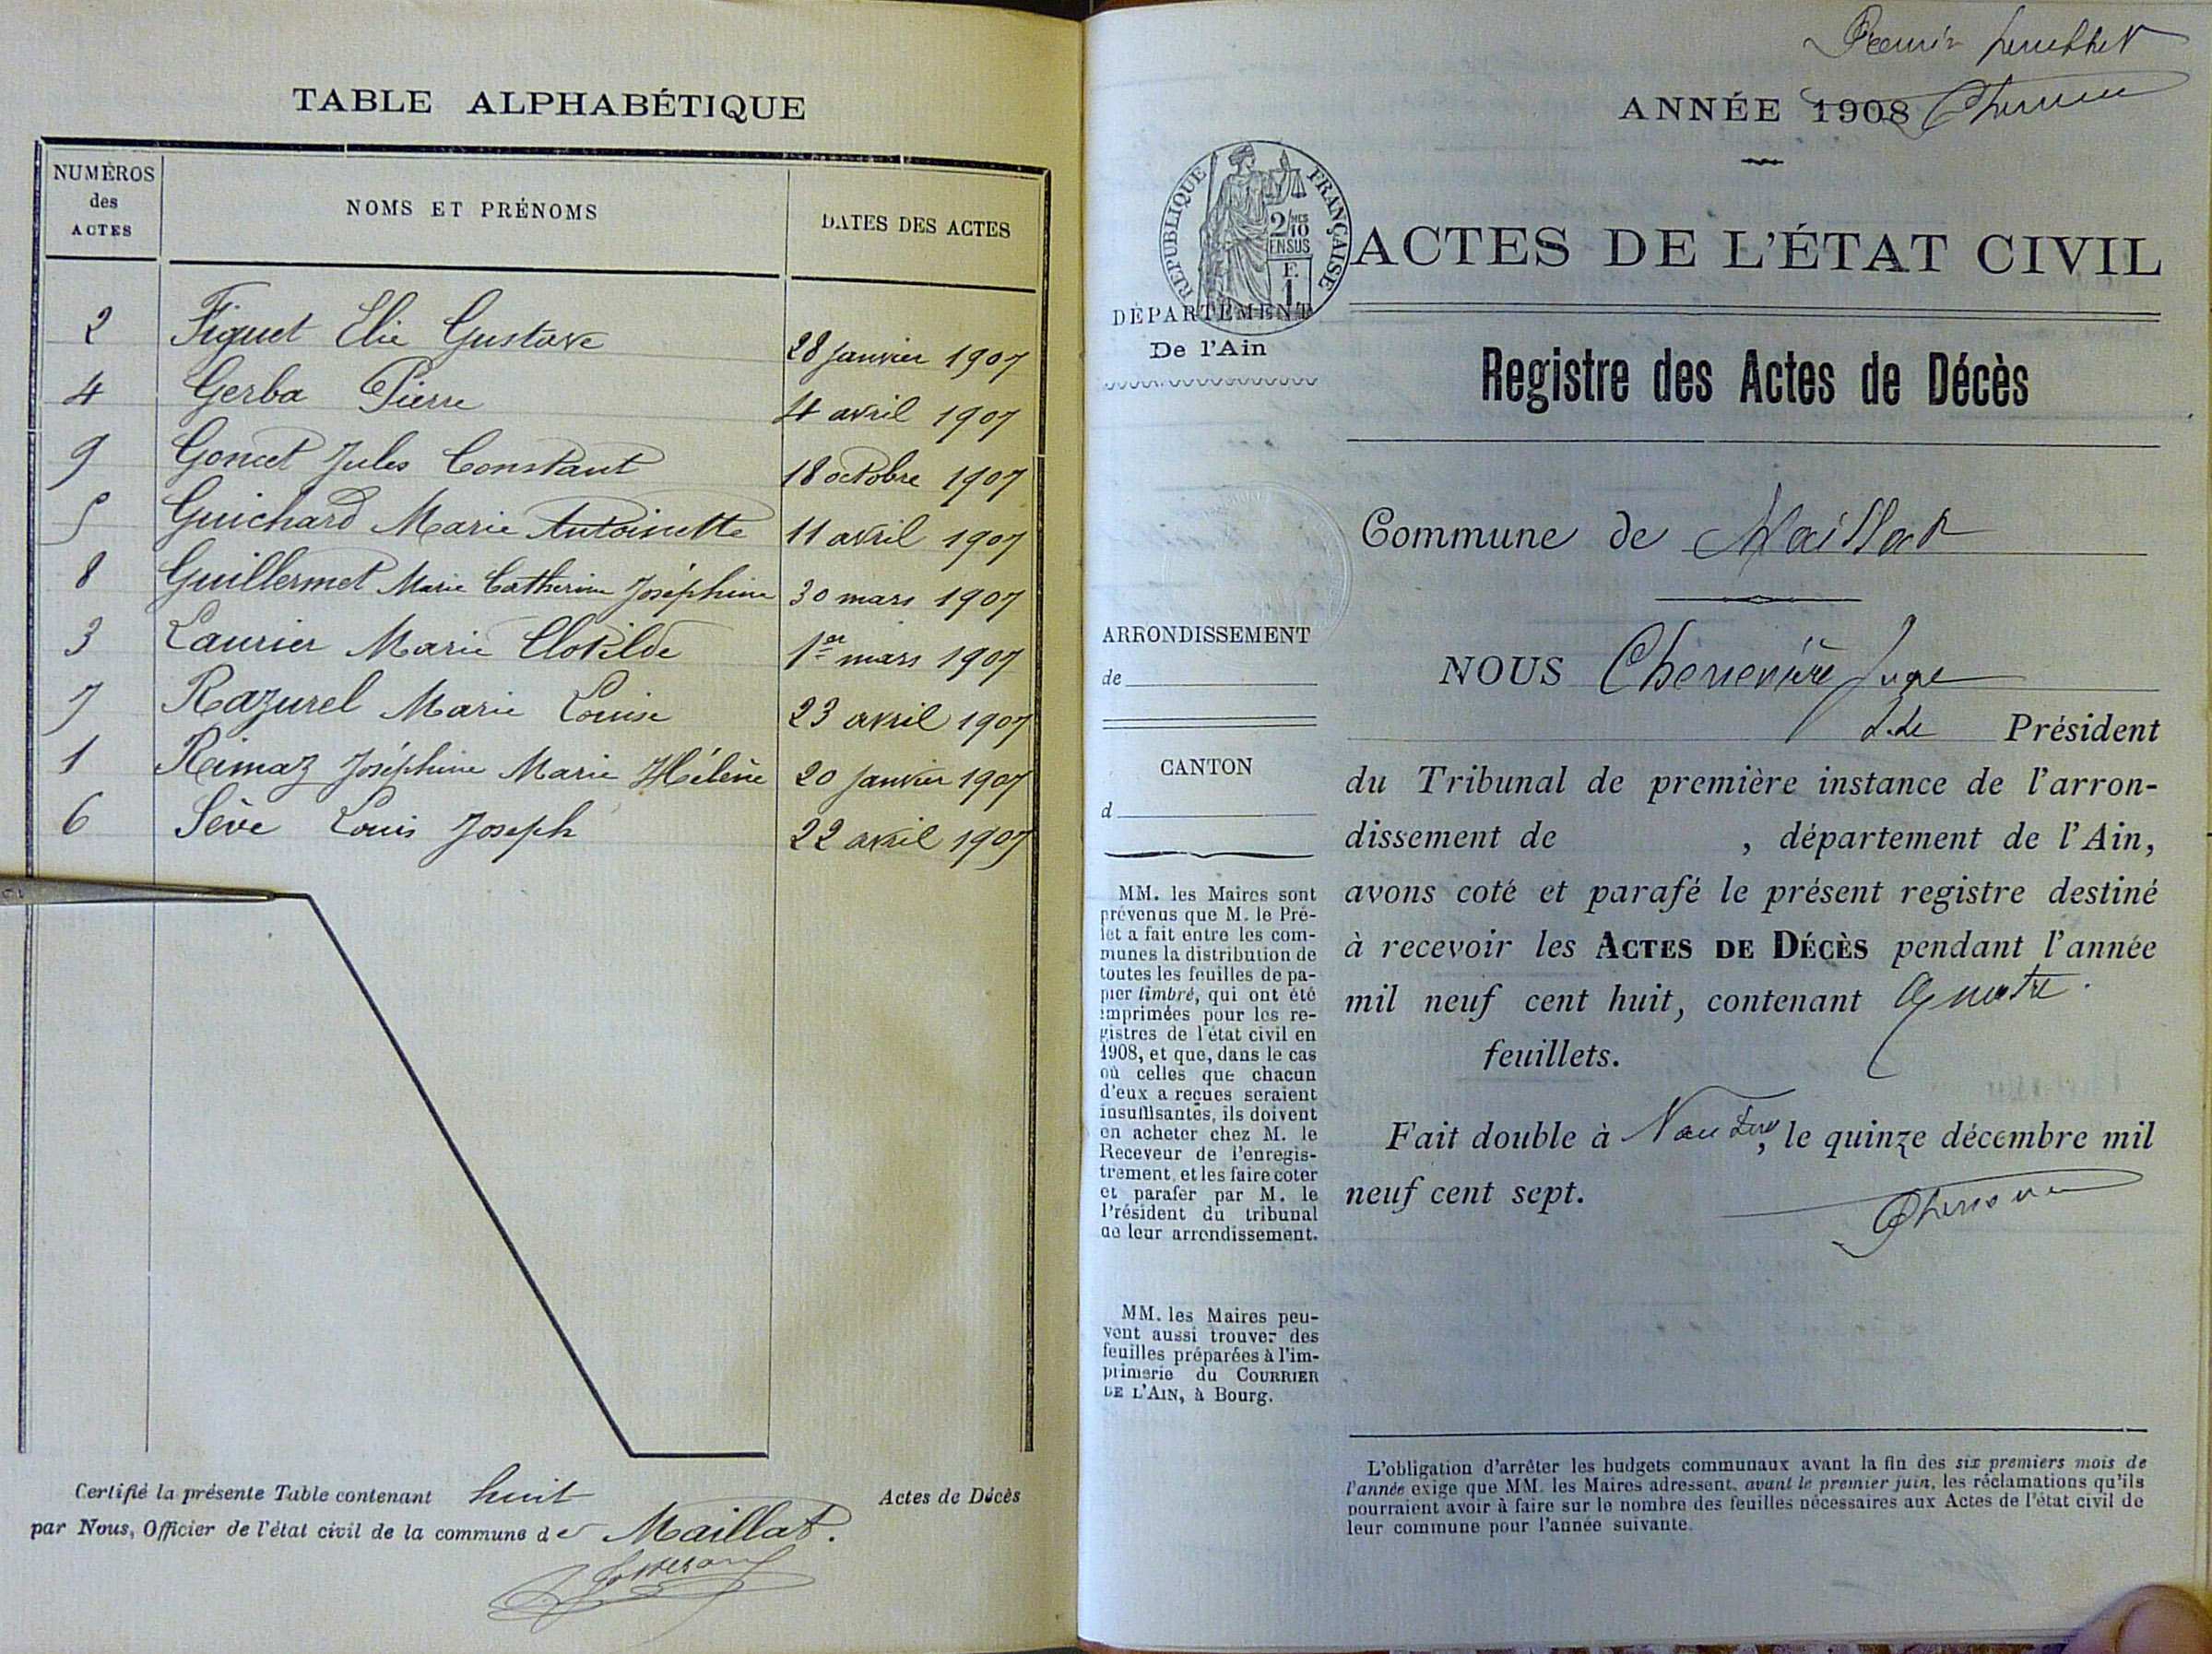 TABLE ALPHABÉTIQUE
NUMÉROS des ACTES
NOMS ET PRÉNOMS
DATES DES ACTES
2 Figuet Elie Gustave 28 janvier 1907
4 Gerba Pierre 4 avril 1907
9 Goncet Jules Constant 18 octobre 1907
5 Guichard Marie Antoinette 11 avril 1907
8 Guillermet Marie Catherine Joséphine 30 mars 1907
3 Laurier Marie Clotilde 1er mars 1907
7 Razurel Marie Louise 23 avril 1907
1 Rimaz Joséphine Marie Hélène 20 janvier 1907
6 Sève Louis Joseph 22 avril 1907
Certifié la présente Table contenant huit Actes de Décès
par Nous, Officier de l'état civil de la commune de Maillat.
Premier feuillet
ANNÉE 1908
RÉPUBLIQUE FRANÇAISE
2/10MES
EN SUS
F.
1
ACTES DE L'ÉTAT CIVIL
DÉPARTEMENT
De l'Ain
Registre des Actes de Décès
Commune de Maillat
ARRONDISSEMENT
de
CANTON
d
MM. les Maires sont
prévenus que M. le Pré-
fet a fait entre les com-
munes la distribution de
toutes les feuilles de pa-
pier timbré, qui ont été
imprimées pour les re-
gistres de l'état civil en
1908, et que, dans le cas
où celles que chacun
d'eux a reçues seraient
insuffisantes, ils doivent
en acheter chez M. le
Receveur de l'enregis-
trement, et les faire coter
et parafer par M. le
Président du tribunal
de leur arrondissement.
MM. les Maires peu-
vent aussi trouver des
feuilles préparées à l'im-
primerie du COURRIER
DE L'AIN, à Bourg.
NOUS Chenevière Juge
Président
du Tribunal de première instance de l'arron-
dissement de , département de l'Ain,
avons coté et parafé le présent registre destiné
à recevoir les ACTES DE DÉCÈS pendant l'année
mil neuf cent huit, contenant Quatre
feuillets.
Fait double à Nantua, le quinze décembre mil
neuf cent sept.
L'obligation d'arrêter les budgets communaux avant la fin des six premiers mois de
l'année exige que MM. les Maires adressent, avant le premier juin, les réclamations qu'ils
pourraient avoir à faire sur le nombre des feuilles nécessaires aux Actes de l'état civil de
leur commune pour l'année suivante.